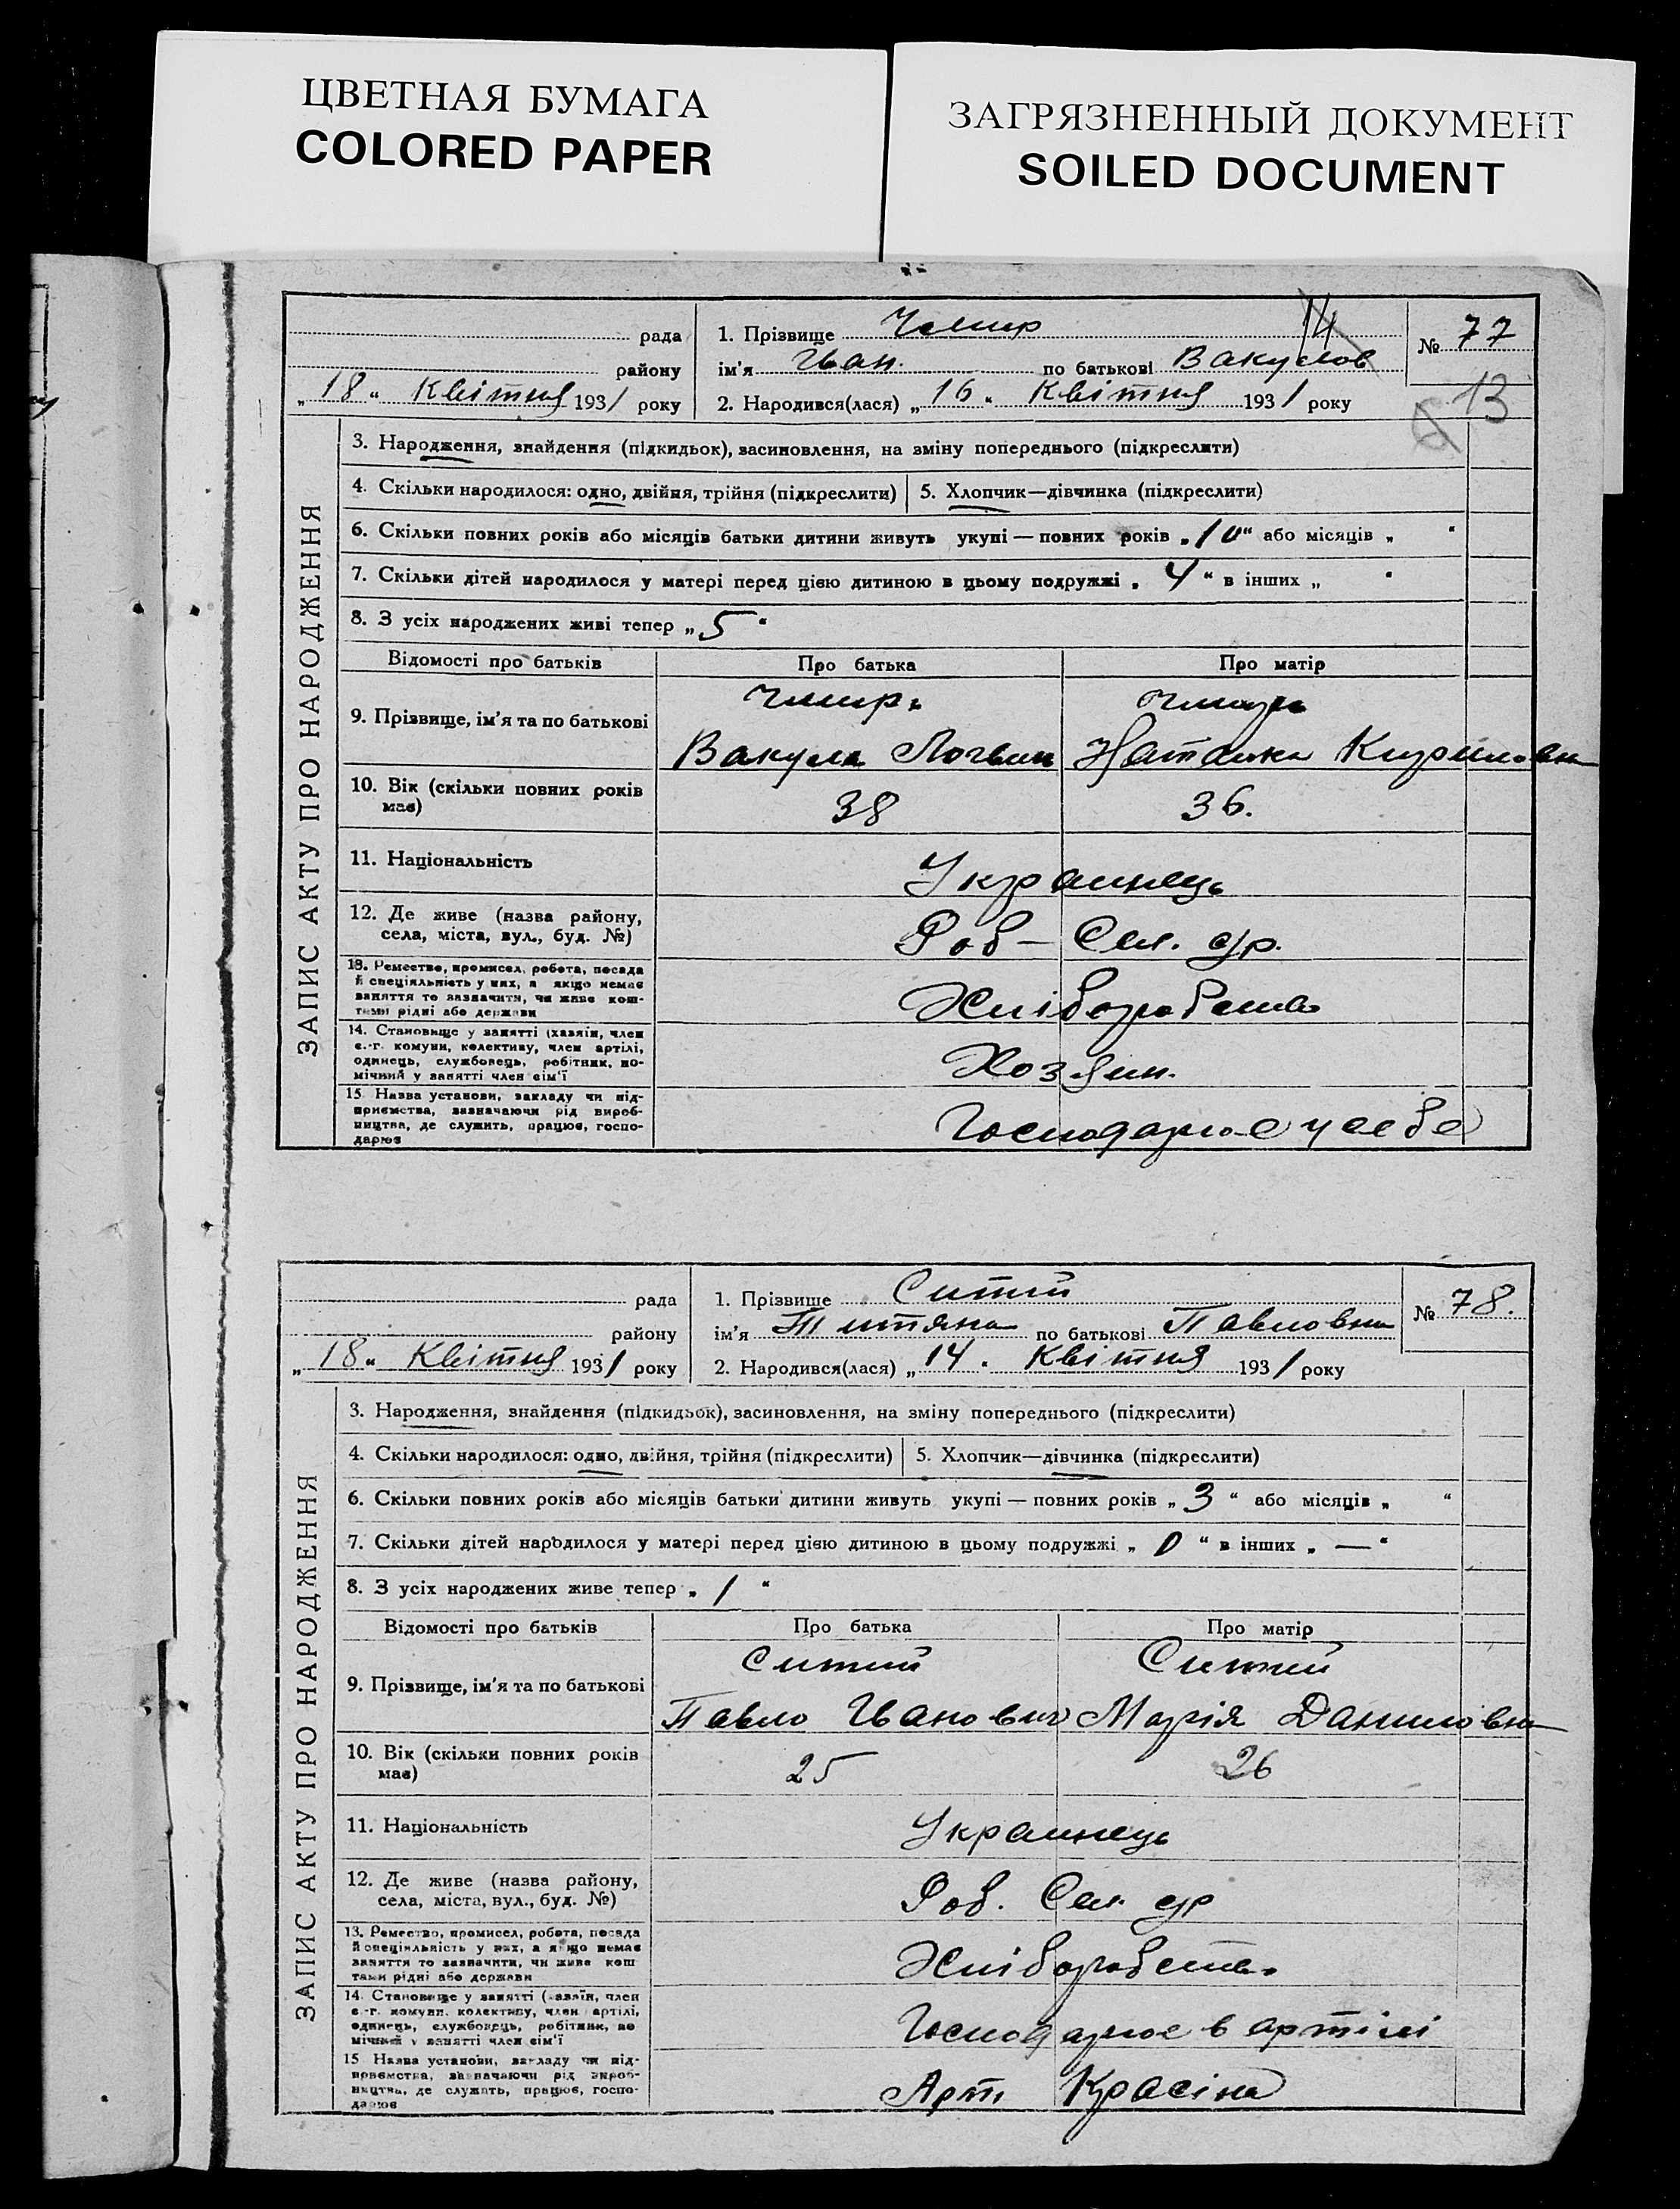 ЦВЕТНАЯ БУМАГА
COLORED PAPER
ЗАГРЯЗНЕННЫЙ ДОКУМЕНТ
SOILED DOCUMENT
ЗАПИС АКТУ ПРО НАРОДЖЕННЯ
рада
району
„18“ Квітня 1931 року
1. Прізвище Чмир 14
ім'я Іван. по батькові Вакулов
2. Народився(лася) „16“ Квітня 1931 року
№ 77
13
3. Народження, знайдення (підкидьок), засиновлення, на зміну попереднього (підкреслити)
4. Скільки народилося: одно, двійня, трійня (підкреслити) 5. Хлопчик—дівчинка (підкреслити)
6. Скільки повних років або місяців батьки дитини живуть укупі — повних років „10“ або місяців „ “
7. Скільки дітей народилося у матері перед цією дитиною в цьому подружжі „ 4 “ в інших „ “
8. З усіх народжених живі тепер „ 5 “
Відомості про батьків Про батька Про матір
9. Прізвище, ім'я та по батькові
Чмирь
Вакула Логвин
Чмирь
Наталка Кириловна
10. Вік (скільки повних років має) 38 36.
11. Національність Украинець
12. Де живе (назва району,
села, міста, вул., буд. №) Роб — Сел. др.
13. Ремество, промисел, робота, посада
й спеціяльність у них, а якщо немає
заняття то зазначити, чи живе кош-
тами рідні або держави
Хліборобство
14. Становище у занятті (хазяїн, член
с.-г. комуни, колективу, член артілі,
одинець, службовець, робітник, по-
мічний у занятті член сім'ї
Хозяин.
15. Назва установи, закладу чи під-
приємства, зазначаючи рід вироб-
ництва, де служить, працює, госпо-
дарює
Господарює у себе
ЗАПИС АКТУ ПРО НАРОДЖЕННЯ
рада
району
„18“ Квітня 1931 року
1. Прізвище Ситий
ім'я Титяна по батькові Павловна
2. Народився(лася) „14“ Квітня 1931 року
№ 78.
3. Народження, знайдення (підкидьок), засиновлення, на зміну попереднього (підкреслити)
4. Скільки народилося: одно, двійня, трійня (підкреслити) 5. Хлопчик—дівчинка (підкреслити)
6. Скільки повних років або місяців батьки дитини живуть укупі — повних років „ 3 “ або місяців „ “
7. Скільки дітей народилося у матері перед цією дитиною в цьому подружжі „ 0 “ в інших „ — “
8. З усіх народжених живе тепер „ 1 “
Відомості про батьків Про батька Про матір
9. Прізвище, ім'я та по батькові
Ситий
Павло Іванович
Ситий
Марія Даниловна
10. Вік (скільки повних років має) 25 26
11. Національність Украинець
12. Де живе (назва району,
села, міста, вул., буд. №) Роб. Сел. др
13. Ремество, промисел, робота, посада
й спеціяльність у них, а якщо немає
заняття то зазначити, чи живе кош
тами рідні або держави
Хліборобство
14. Становище у занятті (хазяїн, член
с.-г. комуни, колективу, член артілі,
одинець, службовець, робітник, по
мічний у занятті член сім'ї
Господарює в артілі
15 Назва установи, закладу чи під-
приємства, зазначаючи рід вироб-
ництва, де служить, працює, госпо-
дарює
Арт. Красіна